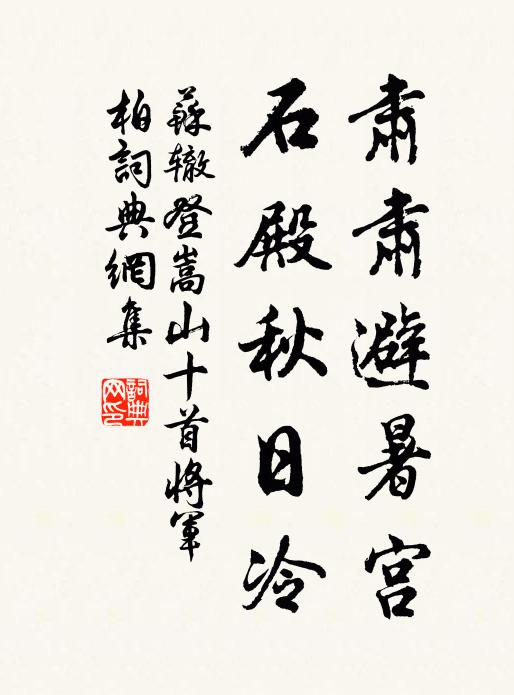 肅肅避暑宮
石殿秋日冷
蘇辙登嵩山十首將軍
柏詞典網集
詞典网印